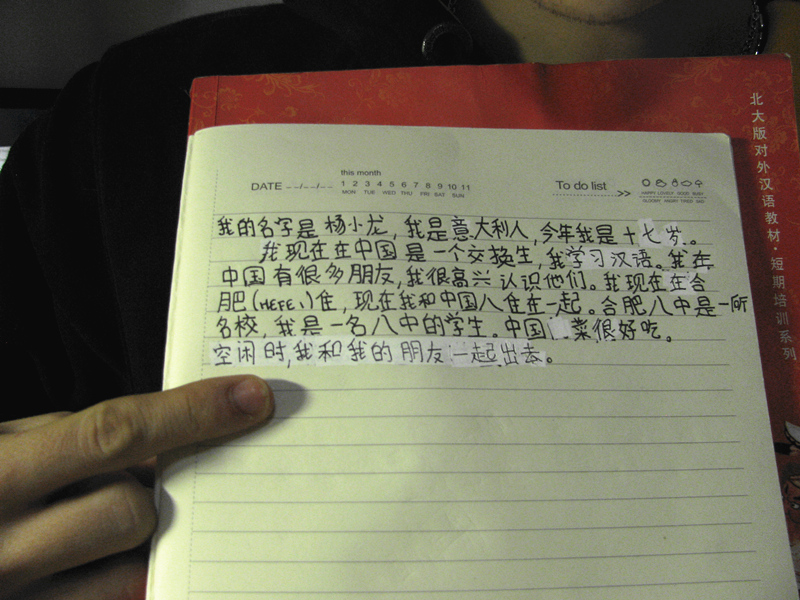 北大版对外汉语教材·短期培训系列
this month
DATE --/--/-- 1 2 3 4 5 6 7 8 9 10 11
MON TUE WED THU FRI SAT SUN
To do list >>
HAPPY LOVELY GOOD BUSY
GLOOMY ANGRY TIRED SAD
我的名字是 杨小龙, 我是意大利人, 今年我是十七岁。
我现在在中国是一个交换生, 我学习汉语。我在
中国有很多朋友, 我很高兴认识他们。我现在在合
肥(HEFEI)住, 现在我和中国人住在一起。合肥八中是一所
名校, 我是一名八中的学生。中国菜很好吃。
空闲时, 我和我的朋友一起出去。